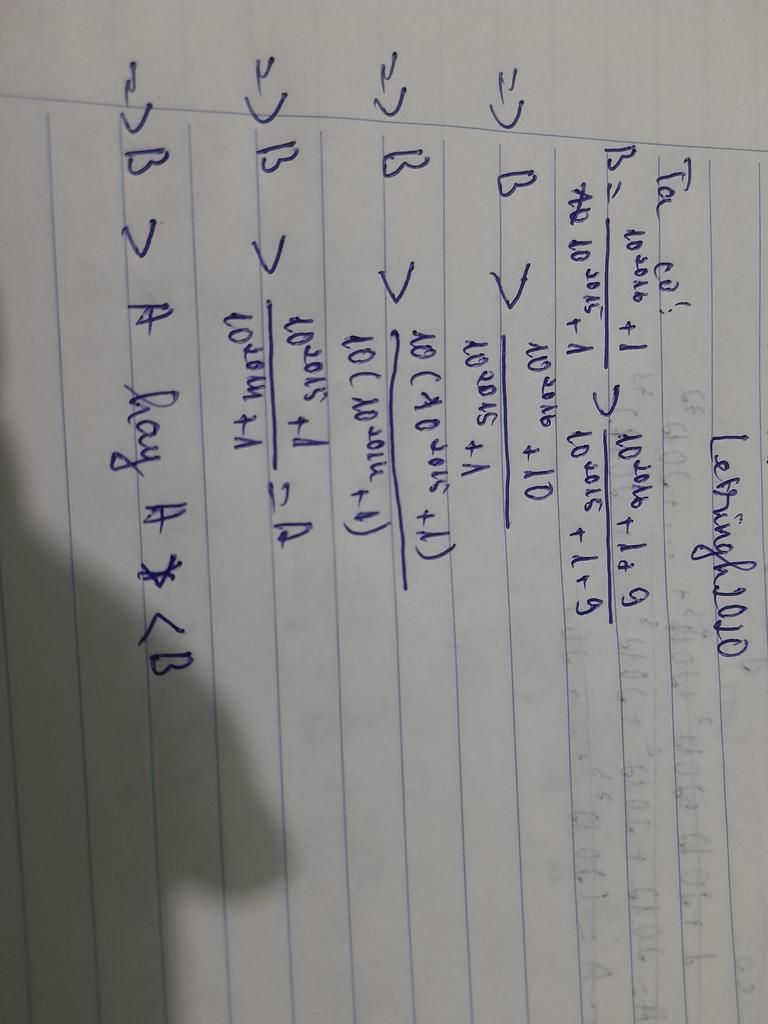 Ta có:
B = 10^2016 + 1 / 10^2015 + 1 > 10^2016 + 1 + 9 / 10^2015 + 1 + 9
=> B > 10^2016 + 10 / 10^2015 + 1
=> B > 10(10^2015 + 1) / 10(10^2014 + 1)
=> B > 10^2015 + 1 / 10^2014 + 1 = A
=> B > A hay A < B